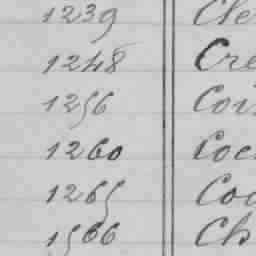 1239 Cle
1248 Cre
1256 Coi
1260 Coc
1265 Coo
1566 Ch